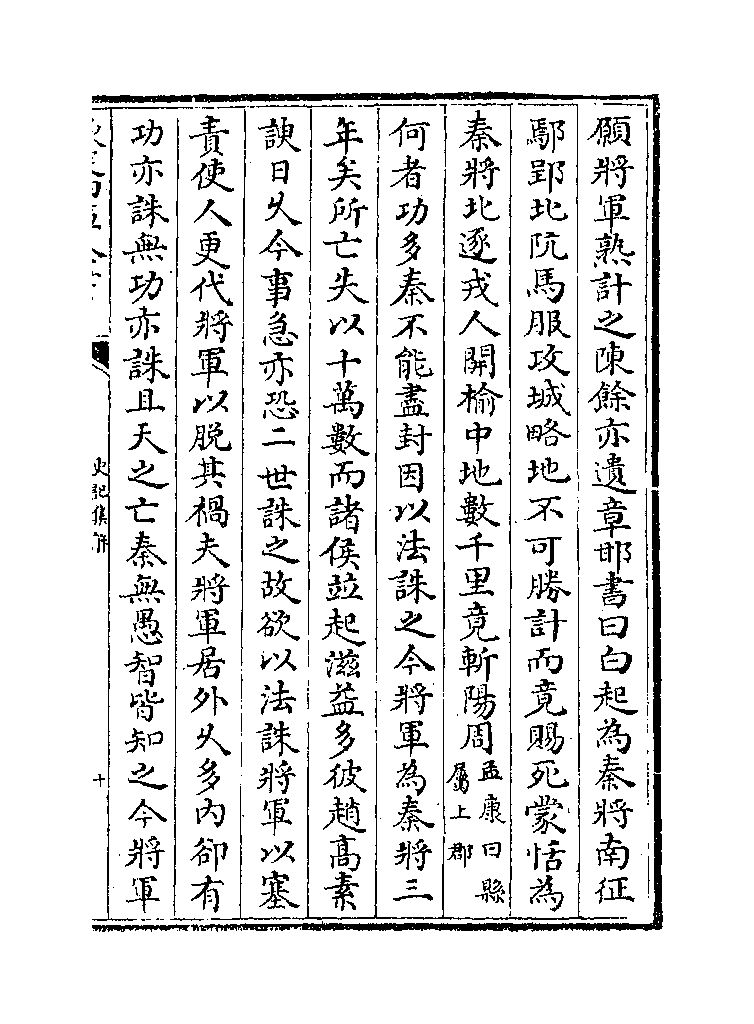 願將軍熟計之陳餘亦遺章邯書曰白起為秦將南征
鄢郢北阬馬服攻城略地不可勝計而竟賜死蒙恬為
秦將北逐戎人開榆中地數千里竟斬陽周孟康曰縣屬上郡
何者功多秦不能盡封因以法誅之今將軍為秦將三
年矣所亡失以十萬數而諸侯並起滋益多彼趙髙素
諛日乆今事急亦恐二世誅之故欲以法誅將軍以塞
責使人更代將軍以脱其禍夫將軍居外乆多内郤有
功亦誅無功亦誅且天之亡秦無愚智皆知之今將軍
史記集解
十